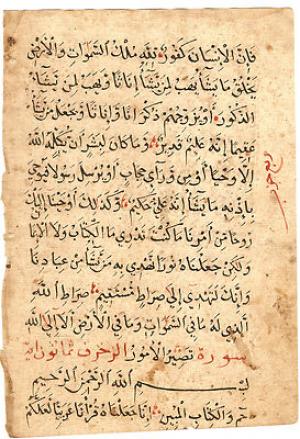 فَإِنَّ الْإِنْسَانَ كَفُورٌ لِلَّهِ مُلْكُ السَّمَوَاتِ وَالْأَرْضِ
يَخْلُقُ مَا يَشَاءُ يَهَبُ لِمَنْ يَشَاءُ إِنَاثًا وَيَهَبُ لِمَنْ يَشَاءُ
الذُّكُورَ أَوْ يُزَوِّجُهُمْ ذُكْرَانًا وَإِنَاثًا وَيَجْعَلُ مَنْ يَشَاءُ
عَقِيمًا إِنَّهُ عَلِيمٌ قَدِيرٌ وَمَا كَانَ لِبَشَرٍ أَنْ يُكَلِّمَهُ اللَّهُ
إِلَّا وَحْيًا أَوْ مِنْ وَرَاءِ حِجَابٍ أَوْ يُرْسِلَ رَسُولًا فَيُوحِيَ
بِإِذْنِهِ مَا يَشَاءُ إِنَّهُ عَلِيٌّ حَكِيمٌ وَكَذَلِكَ أَوْحَيْنَا إِلَيْكَ
رُوحًا مِنْ أَمْرِنَا مَا كُنْتَ تَدْرِي مَا الْكِتَابُ وَلَا الْإِيمَانُ
وَلَكِنْ جَعَلْنَاهُ نُورًا نَهْدِي بِهِ مَنْ نَشَاءُ مِنْ عِبَادِنَا
وَإِنَّكَ لَتَهْدِي إِلَى صِرَاطٍ مُسْتَقِيمٍ صِرَاطِ اللَّهِ
الَّذِي لَهُ مَا فِي السَّمَوَاتِ وَمَا فِي الْأَرْضِ أَلَا إِلَى اللَّهِ
تَصِيرُ الْأُمُورُ سورة الزخرف ثمانون آية
بِسْمِ اللَّهِ الرَّحْمَنِ الرَّحِيمِ
حم وَالْكِتَابِ الْمُبِينِ إِنَّا جَعَلْنَاهُ قُرْآنًا عَرَبِيًّا لَعَلَّكُمْ